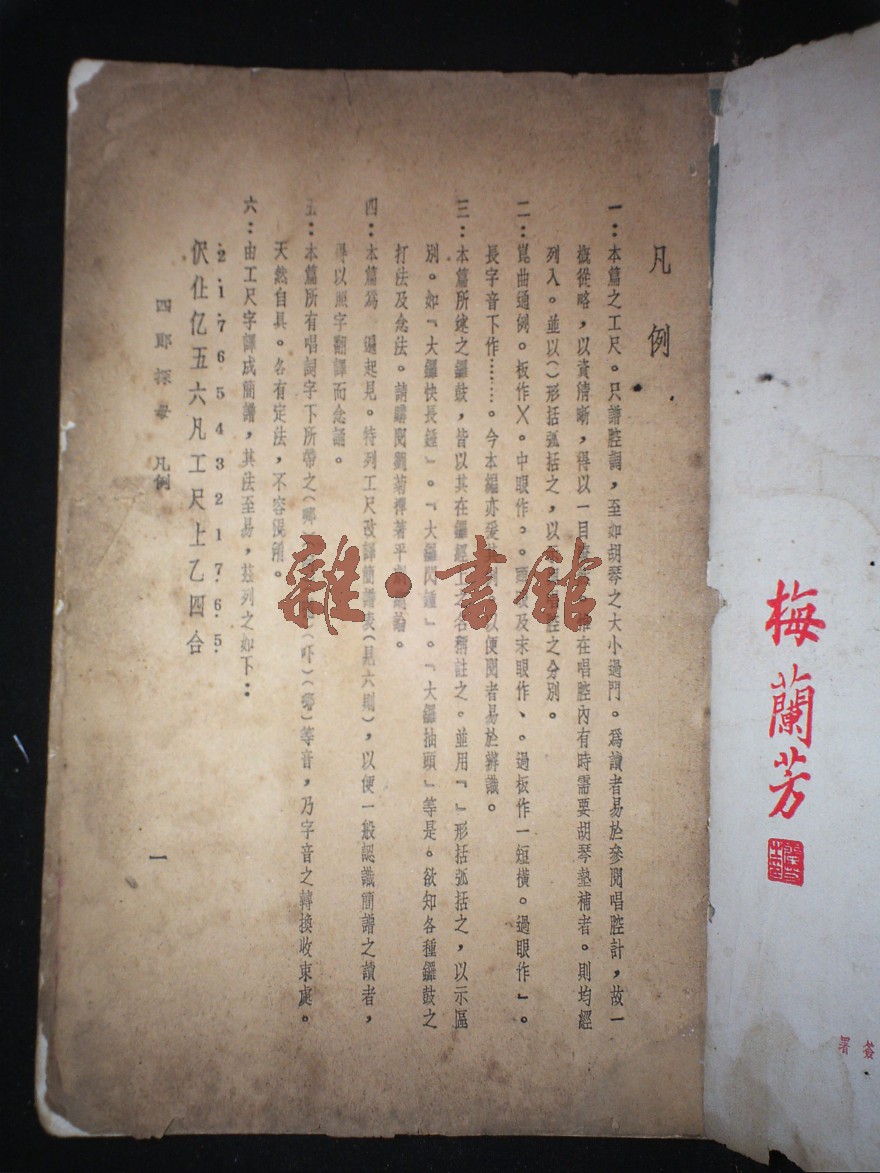 凡例
一：本篇之工尺。只譜腔調，至如胡琴之大小過門。為讀者易於參閱唱腔計，故一
概從略，以資清晰，得以一目 在唱腔內有時需要胡琴墊補者。則均經
列入。並以（）形括弧括之，以 之分別。
二：崑曲通例。板作×。中眼作。。 及末眼作、。過板作一短橫。過眼作」。
長字音下作……。今本編亦爰 以便閱者易於辨識。
三：本篇所述之鑼鼓，皆以其在鑼經上之名稱註之。並用「」形括弧括之，以示區
別。如「大鑼快長錘」。「大鑼閃錘」。「大鑼抽頭」等是。欲知各種鑼鼓之
打法及念法。請購閱劉菊禪著平劇
四：本篇為 遍起見。特列工尺改譯簡譜表（見六則），以便一般認識簡譜之讀者，
得以照字翻譯而念誦。
五：本篇所有唱詞字下所帶之 （吓） 等音，乃字音之轉換收束處。
天然自具。各有定法，不容
六：由工尺字譯成簡譜，其法至易，茲列之如下：
2 1 7 6 5 4 3 2 1 7 6 5
伬仩亿五六凡工尺上乙四合
四郎探母 凡例
一
雜·書館
梅蘭芳
簽署